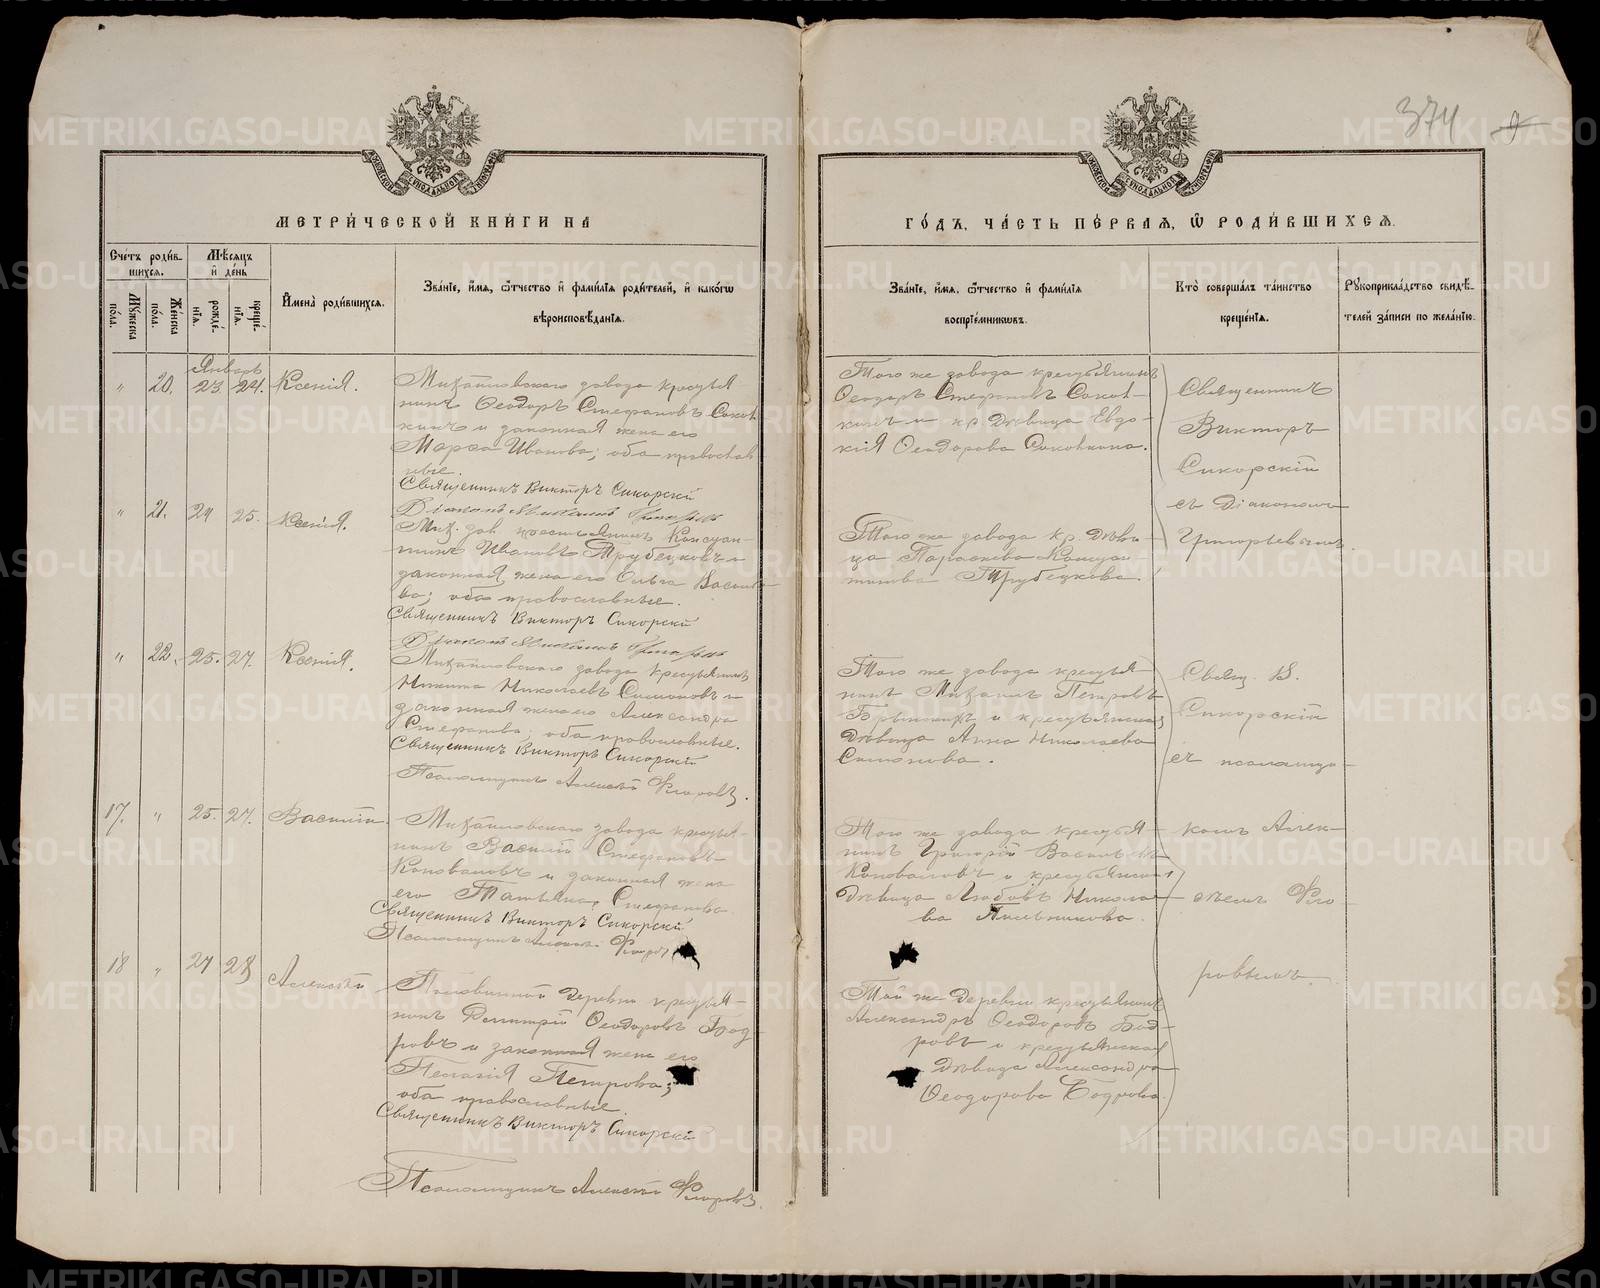 374
МЕТРИЧЕСКОЙ КНИГИ НА
ГОДЪ, ЧАСТЬ ПЕРВАЯ, Ѿ РОДИВШИХСЯ.
Счетъ родившихся.
Мѣсяцъ и день
Мужеска пола.
Женска пола.
рожденія.
крещенія.
Имена родившихся.
Званіе, имя, ѿчество и фамилія родителей, и какогѡ
вѣроисповѣданія.
Званіе, имя, ѿчество и фамилія
воспріемникѡвъ.
Кто совершалъ таинство
крещенія.
Рукоприкладство свидѣ-
телей записи по желанію.
Январь
" 20. 23. 24. Ксенія.
Михайловскаго завода крестья
нинъ Ѳеодоръ Стефановъ
кинъ и законная жена его
Марѳа Иванова; оба православ
ные.
Священникъ Викторъ Сикорскій
Того же завода крестьянинъ
Ѳеодоръ Стефановъ
кинъ и кр. дѣвица Евдо-
кія Ѳеодорова
Священникъ
Викторъ
Сикорскій
съ діакономъ
Григорьевымъ.
" 21. 24 25. Ксенія.
Діаконъ
Мих. зав. крестьянинъ Констан-
тинъ Ивановъ Трубецковъ и
законная жена его Ольга Василь
ва; оба православные.
Священникъ Викторъ Сикорскій
Діаконъ
Того же завода кр. дѣви-
ца Параскева Констан
тинова Трубецкова.
" 22. 25. 27. Ксенія.
Михайловскаго завода крестьянинъ
Никита Николаевъ Симоновъ и
законная жена его Александра
Стефанова; оба православные.
Священникъ Викторъ Сикорскій
Псаломщикъ Алексѣй Флоровъ.
Того же завода крестья
нинъ Михаилъ Петровъ
и крестьянская
дѣвица Анна Николаева
Симонова.
Свящ. В.
Сикорскій
съ псаломщи-
17. " 25. 27. Василій.
Михайловскаго завода крестья-
нинъ Василій Стефановъ
Коноваловъ и законная жена
его Татьяна Стефанова
Священникъ Викторъ Сикорскій
Псаломщикъ Алексѣй Флоровъ
Того же завода крестья-
нинъ Григорій Васильевъ
Коноваловъ и крестьянская
дѣвица Любовь Никола-
ва Пильникова.
комъ Алек-
сѣемъ Фло-
ровымъ.
18 " 27 28 Алексѣй
деревни крестья-
нинъ Димитрій Ѳеодоровъ Бод
ровъ и законная жена его
Пелагія Петрова;
оба православные.
Священникъ Викторъ Сикорскій
Псаломщикъ Алексѣй Флоровъ.
Той же деревни крестьянинъ
Александръ Ѳеодоровъ Бод-
ровъ и крестьянская
дѣвица Александра
Ѳеодорова Бодрова.
METRIKI.GASO-URAL.RU